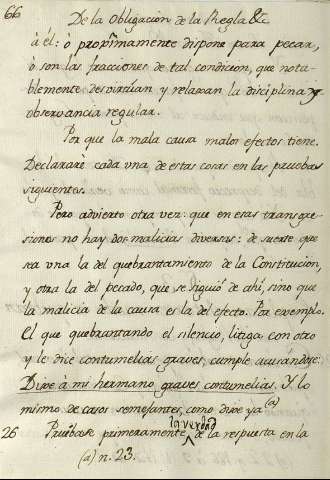 66 De la Obligacion de la Regla &c
à él: ò proximamente dispone para pecar,
ò son las fracciones de tal condicion, que nota-
blemente desvirtúan y relaxan la disciplina y
observancia regular.
Por que la mala causa malos efectos tiene.
Declararé cada una de estas cosas en las pruebas
siguientes.
Pero advierto otra vez: que en esas transgre-
siones no hay dos malicias diversas: de suerte que
sea una la del quebrantamiento de la Constitucion,
y otra la del pecado, que se siguió de ahí, sino que
la malicia de la causa es la del efecto. Por exemplo.
El que quebrantando el silencio, litiga con otro
y le dice contumelias graves, cumple acusándose:
Dixe à mi hermano graves contumelias. Y lo
mismo de casos semejantes, como dixe ya (a)
la verdad
26 Pruébase primeramente de la respuesta en la
(a) n. 23.